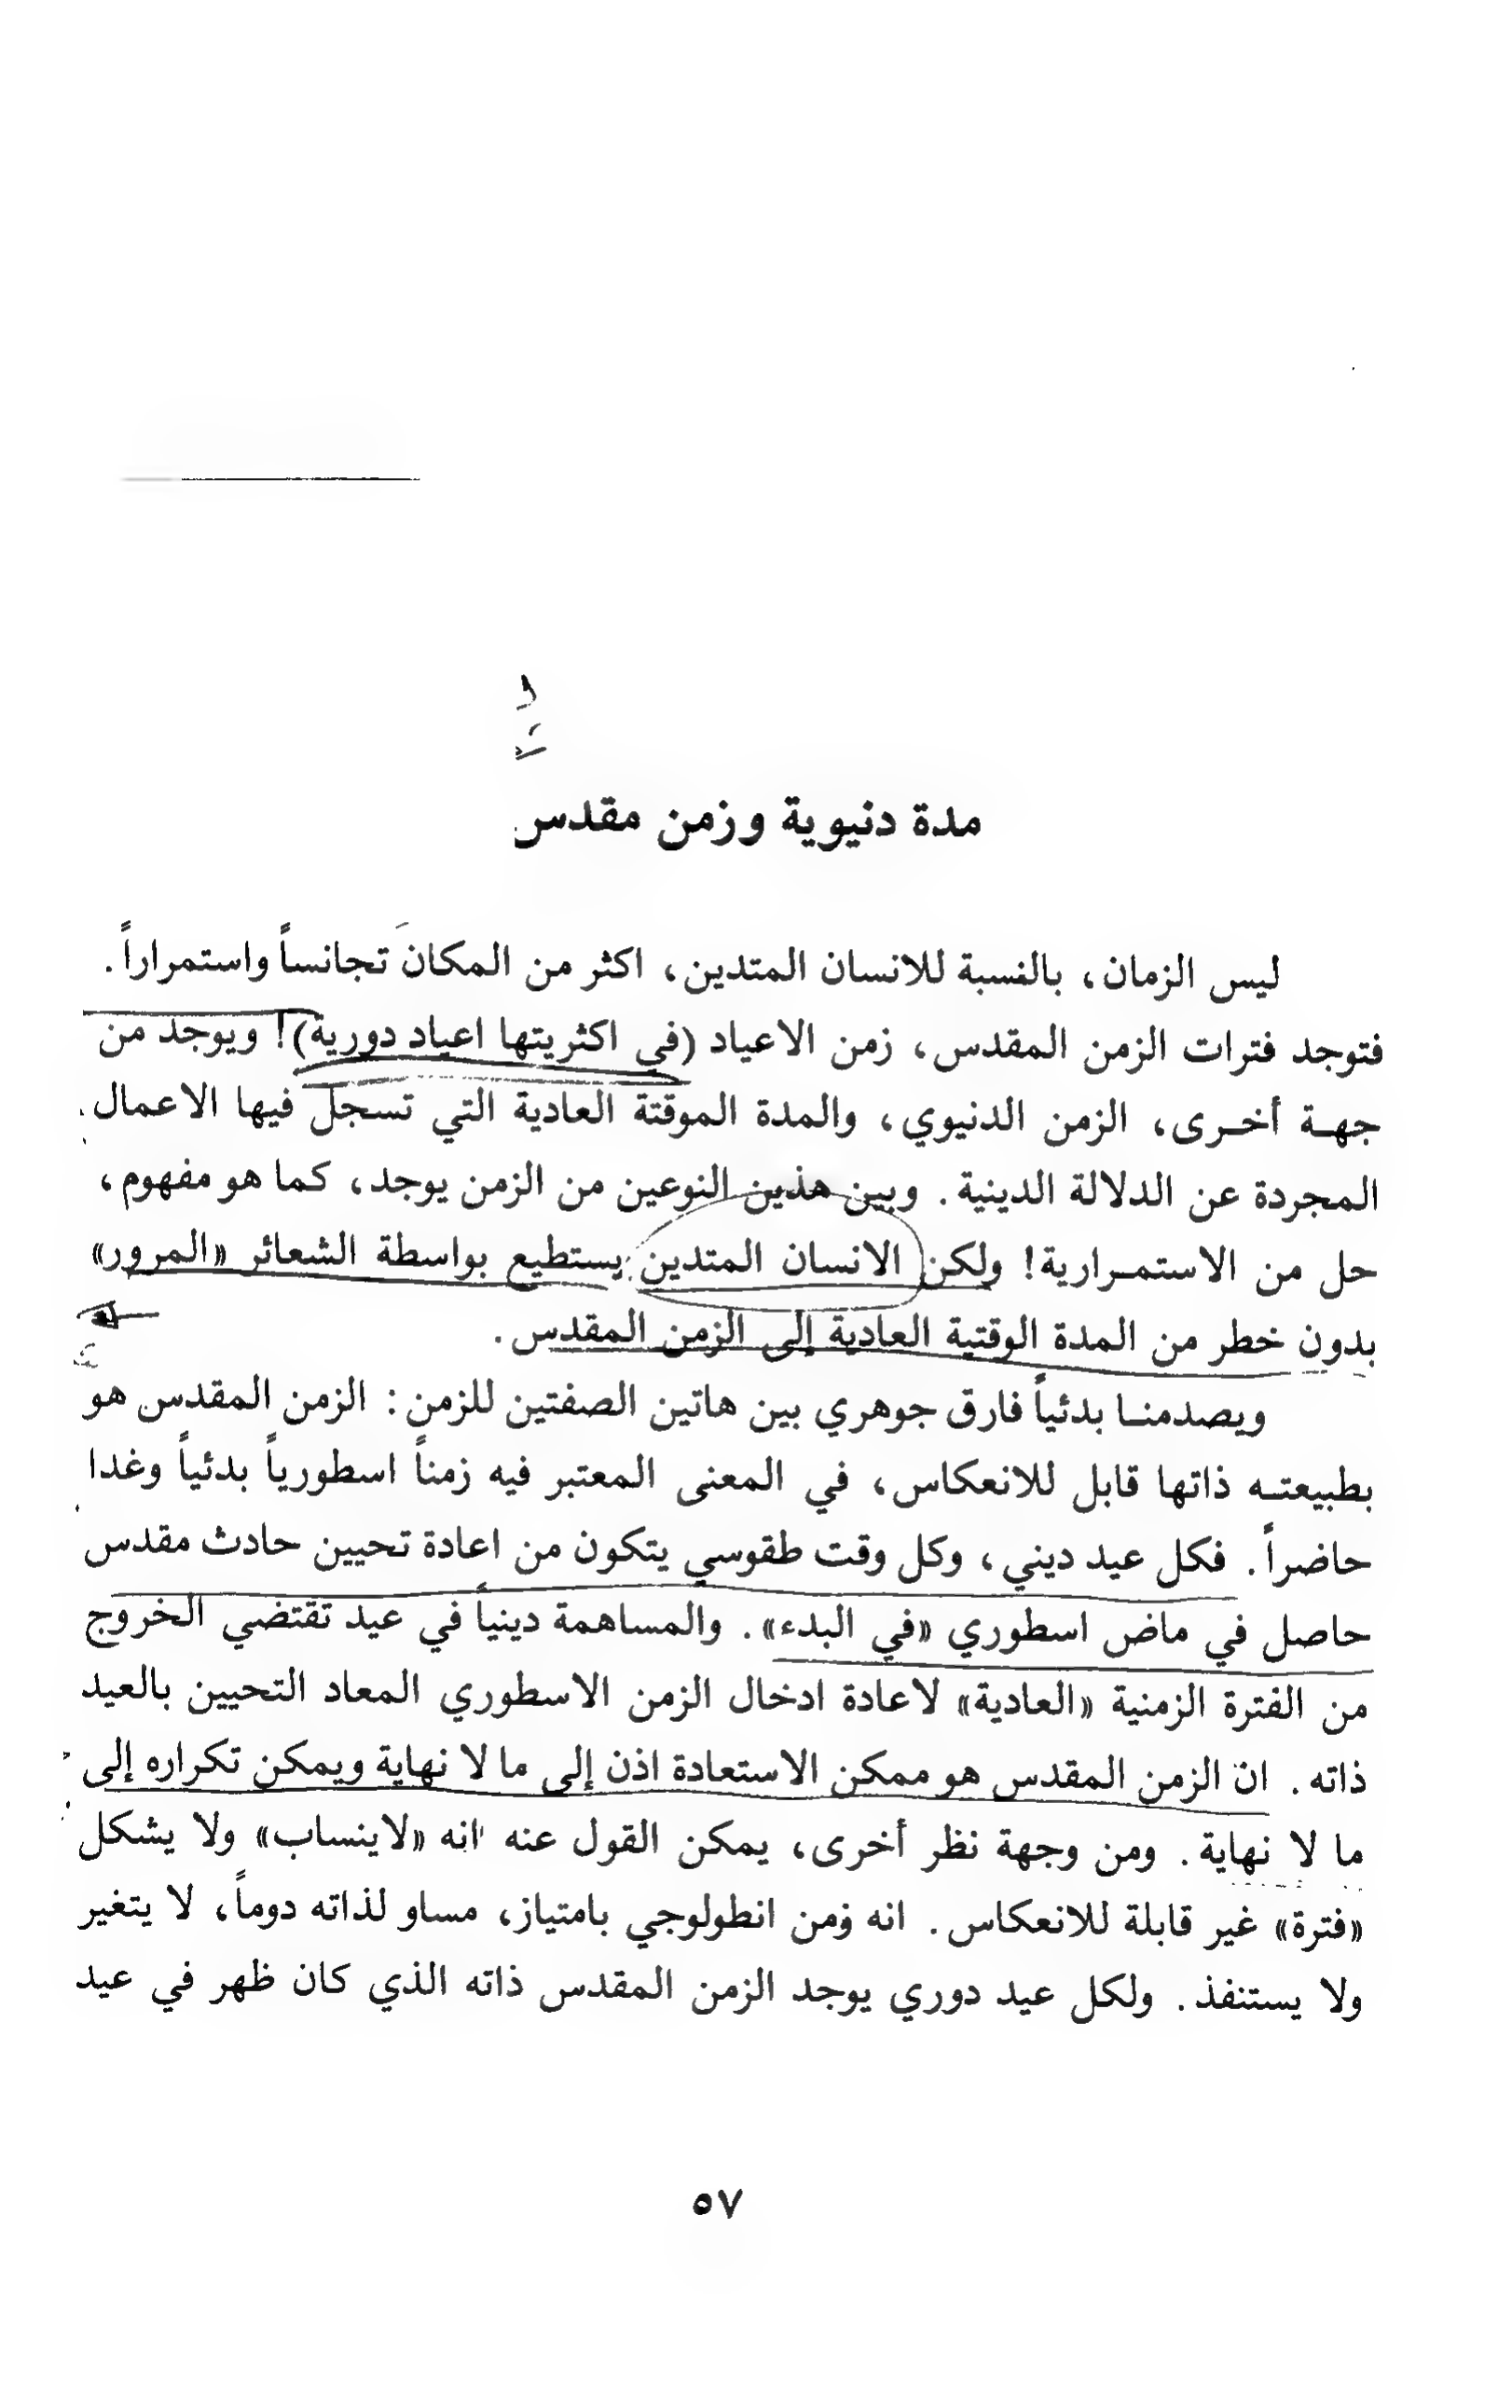 مدة دنيوية وزمن مقدس
ليس الزمان، بالنسبة للانسان المتدين، اكثر من المكان تجانساً واستمراراً.
فتوجد فترات الزمن المقدس، زمن الاعياد (في اكثريتها اعياد دورية)! ويوجد من
جهة أخرى، الزمن الدنيوي، والمدة الموقتة العادية التي تسجل فيها الاعمال
المجردة عن الدلالة الدينية. وبين هذين النوعين من الزمن يوجد، كما هو مفهوم،
حل من الاستمرارية! ولكن الانسان المتدين يستطيع بواسطة الشعائر «المرور»
بدون خطر من المدة الوقتية العادية إلى الزمن المقدس.
ويصدمنا بدئياً فارق جوهري بين هاتين الصفتين للزمن: الزمن المقدس هو
بطبيعته ذاتها قابل للانعكاس، في المعنى المعتبر فيه زمناً اسطورياً بدئياً وغدا
حاضراً. فكل عيد ديني، وكل وقت طقوسي يتكون من اعادة تحيين حادث مقدس
حاصل في ماض اسطوري «في البدء». والمساهمة دينياً في عيد تقتضي الخروج
من الفترة الزمنية «العادية» لاعادة ادخال الزمن الاسطوري المعاد التحيين بالعيد
ذاته. ان الزمن المقدس هو ممكن الاستعادة اذن إلى ما لا نهاية ويمكن تكراره إلى
ما لا نهاية. ومن وجهة نظر أخرى، يمكن القول عنه انه «لاينساب» ولا يشكل
«فترة» غير قابلة للانعكاس. انه زمن انطولوجي بامتياز، مساو لذاته دوماً، لا يتغير
ولا يستنفذ. ولكل عيد دوري يوجد الزمن المقدس ذاته الذي كان ظهر في عيد
٥٧